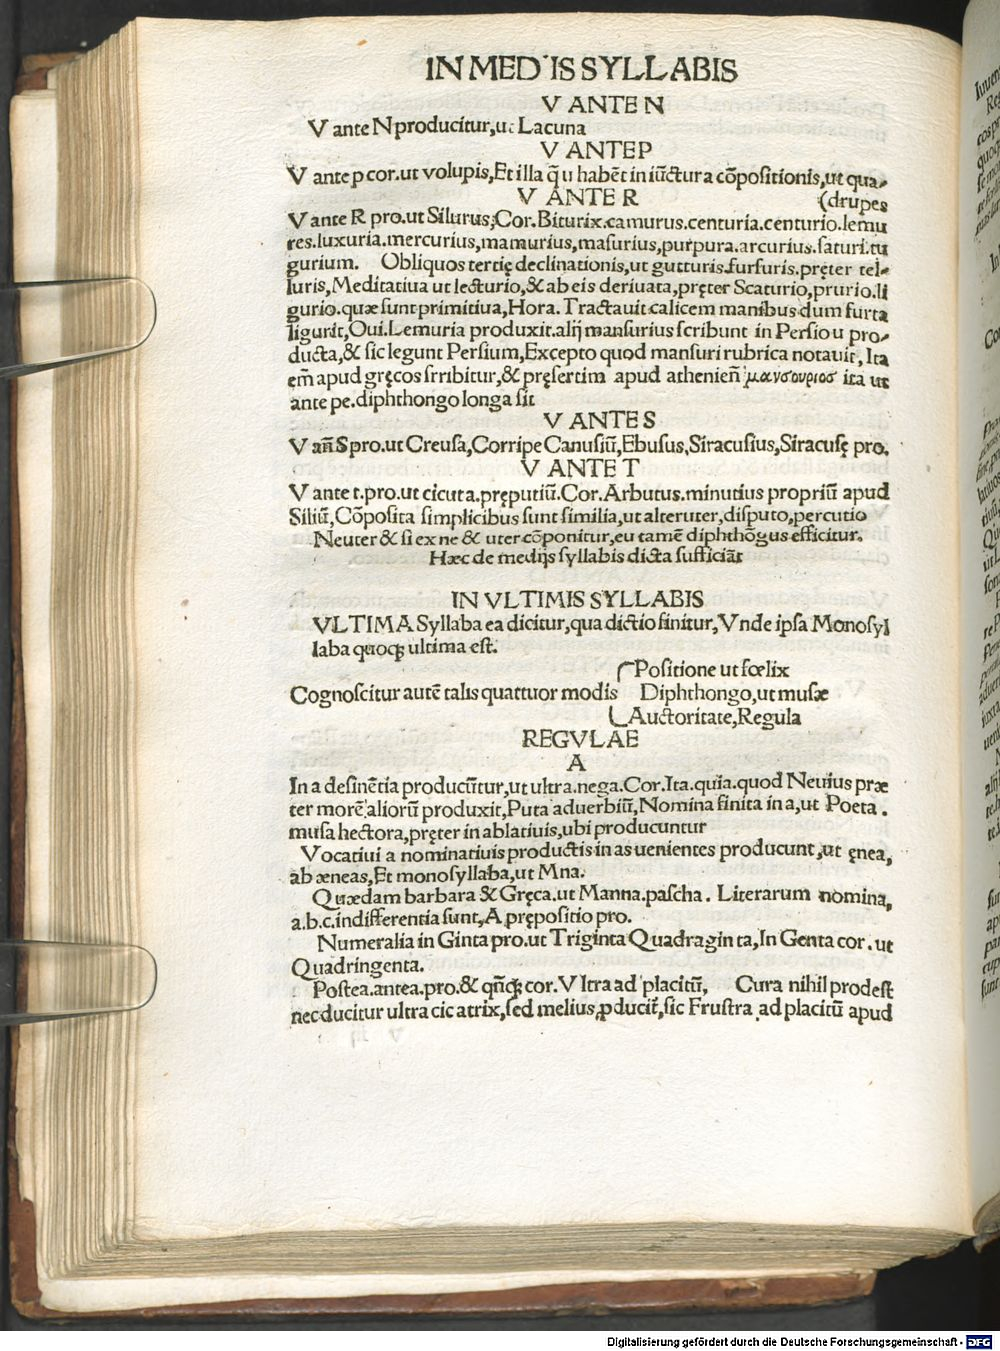 IN MED'IS SYLLABIS
V ANTE N
V ante N producitur, ut Lacuna
V ANTE P
V ante p cor. ut volupis, Et illa q̄ u habēt in iūctura cōpositionis, ut qua-
V ANTE R (drupes
V ante R pro. ut Silurus, Cor. Biturix. camurus. centuria. centurio. lemu
res. luxuria. mercurius, mamurius, masurius, purpura. arcurius. saturi. tu
gurium. Obliquos tertię declinationis, ut gutturis. furfuris. pręter tel-
luris, Meditatiua ut lecturio, & ab eis deriuata, pręter Scaturio, prurio. li
gurio. quæ sunt primitiua, Hora. Tractauit calicem manibus dum furta
ligurit, Oui. Lemuria produxit. alij mansurius scribunt in Persio u pro-
ducta, & sic legunt Persium, Excepto quod mansuri rubrica notauit, Ita
em̄ apud gręcos srribitur, & pręsertim apud athenien̄ μανσουριοσ ita ut
ante pe. diphthongo longa sit
V ANTE S
V an̄ S pro. ut Creusa, Corripe Canusiū, Ebusus, Siracusius, Siracusę pro.
V ANTE T
V ante t. pro. ut cicuta. pręputiū. Cor. Arbutus. minutius propriū apud
Siliū, Cōposita simplicibus sunt similia, ut alteruter, disputo, percutio
Neuter & si ex ne & uter cōponitur, eu tamē diphthōgus efficitur.
Hæc de medijs syllabis dicta sufficiāt
IN VLTIMIS SYLLABIS
VLTIMA Syllaba ea dicitur, qua dictio finitur, Vnde ipsa Monosyl
laba quoqꝫ ultima est.
Positione ut fœlix
Cognoscitur autē talis quattuor modis Diphthongo, ut musæ
Auctoritate, Regula
REGVLAE
A
In a desinētia producūtur, ut ultra. nega. Cor. Ita. quia. quod Neuius præ
ter morē aliorū produxit, Puta aduerbiū, Nomina finita in a, ut Poeta.
musa hectora, pręter in ablatiuis, ubi producuntur
Vocatiui a nominatiuis productis in as uenientes producunt, ut ęnea,
ab æneas, Et monosyllaba, ut Mna.
Quædam barbara & Gręca. ut Manna. pascha. Literarum nomina,
a. b. c. indifferentia sunt, A prępositio pro.
Numeralia in Ginta pro. ut Triginta Quadraginta, In Genta cor. ut
Quadringenta.
Postea. antea. pro. & qn̄qꝫ cor. Vltra ad placitū, Cura nihil prodest
nec ducitur ultra cicatrix, sed melius, ꝓducit̄, sic Frustra ad placitū apud
Digitalisierung gefördert durch die Deutsche Forschungsgemeinschaft - DFG